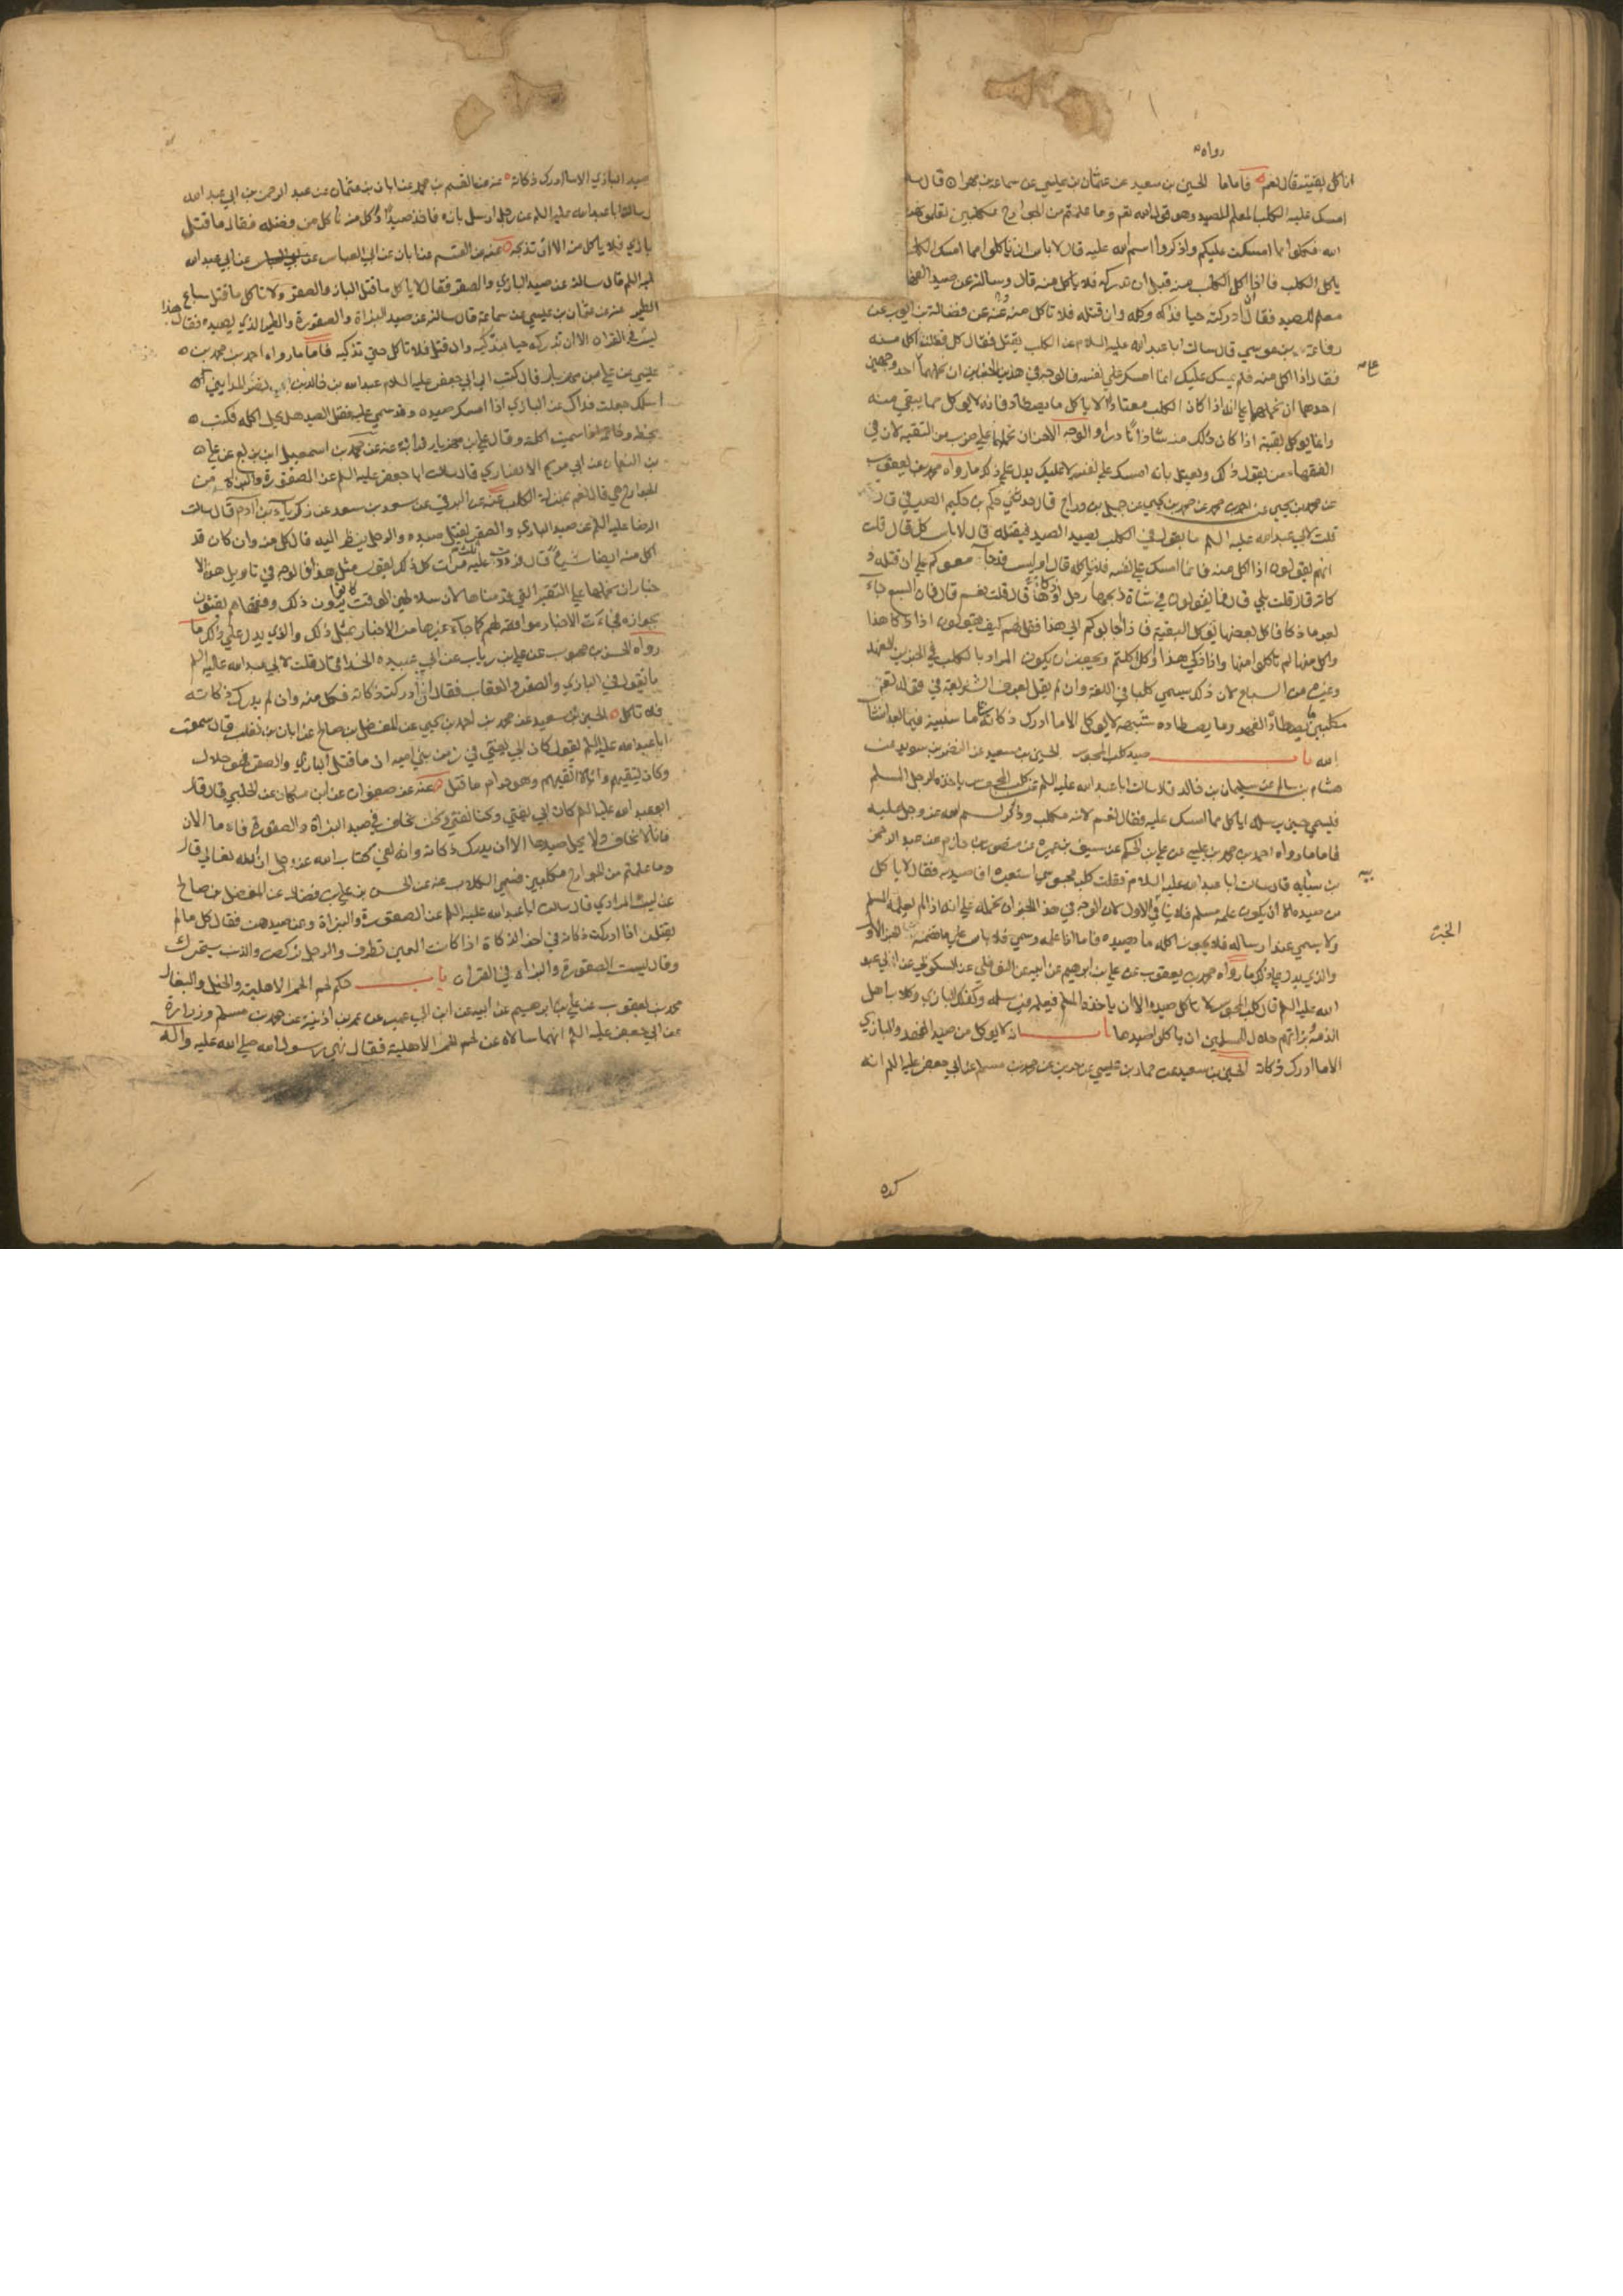 رواه
انا كل بقيته قال نعم فاما ما الحسين بن سعيد عن عثمان بن عيسى عن سماعة بن مهران قال
امسك عليه الكلب المعلم للصيد وهو قول الله تعم وما علمتم من الجوارح مكلبين تعلمونهن
الله فكلوا مما امسكن عليكم واذكروا اسم الله عليه قال لا باس ان تاكلوا مما امسك الكلب
ياكل الكلب فاذا اكل الكلب منه قبل ان تدركه فلا تاكل منه قال وسالته عن صيد الفهد
معلم للصيد فقال ان ادركته حيا فذكه وكله وان قتله فلا تاكل منه عنه عن فضالة بن ايوب عن
رفاعة بن موسى قال سالت ابا عبد الله عليه السلام عن الكلب يقتل فقال كل فقلت اكل منه
فقال اذا اكل منه فلم يمسك عليك انما امسك على نفسه فالوجه في هذين الخبرين ان نحملهما احد وجهين
احدهما ان نحملهما على انه اذا كان الكلب معتادا لاكل ما يصطاد فانه لا يوكل مما يبقى منه
وانما يوكل بقيته اذا كان ذلك منه شاذا نادرا والوجه الاخر ان نحملهما على ضرب من التقية لان في
الفقهاء من يقول ذلك ويعتل بانه امسك على نفسه لا عليك يدل على ذكر ما رواه محمد بن يعقوب
عن محمد بن يحيى عن احمد بن محمد عن محمد بن يحيى عن جميل بن دراج قال حدثني حكم بن حكيم الصيرفي قال
قلت لابي عبد الله عليه السلم ما تقول في الكلب يصيد الصيد فيقتله قال لا باس كل قال قلت
انهم يقولون اذا اكل منه فانما امسك على نفسه فلا تاكله قال اوليس قد جامعوكم على ان قتله ذ
كاته قال قلت بلى قال فما يقولون في شاة ذبحها رجل اذكاها قال قلت نعم قال فان السبع جاء
بعد ما ذكاها فاكل بعضها يوكل البقية فاذا اجابوكم الى هذا فقل لهم كيف تقولون اذا ذكا هذا
واكل منها لم تاكلوا منها واذا ذكى هذا واكل اكلتم ويحتمل ان يكون المراد بالكلب في الخبرين الفهد
وغيره من السباع لان ذلك يسمى كلبا في اللغة وان لم يقل بعرف الشريعة في قوله تعم
مكلبين ما يصطاد الفهد وما يصطاده شبهه لا يوكل الا ما ادرك ذكاته على ما سنبينه فيما بعد انشا
الله باب صيد كلب المجوس الحسين بن سعيد عن النضر بن سويد عن
هشام بن سالم عن سليمان بن خالد قال سالت ابا عبد الله عليه السلم عن كلب المجوسي ياخذه الرجل المسلم
فيسمي حين يرسله اياكل مما امسك عليه فقال نعم لانه مكلب وذكر اسم الله عز وجل عليه
فاما ما رواه احمد بن محمد بن عيسى عن علي بن الحكم عن سيف بن عميرة عن منصور بن حازم عن عبد الرحمن
بن سيابه قال سالت ابا عبد الله عليه السلام فقلت كلب مجوسي استعيره افاصيد به فقال لا ياكل
من صيده الا ان يكون علمه مسلم فلا ينافي الاول لان الوجه في هذا الخبر ان نحمله على انه اذا لم يعلمه المسلم
ولا يسمي عند ارساله فلا يجوز اكله ما يصيده فاما اذا علمه وسمى فلا باس على ما تضمنه الخبر الاول
والذي يدل على ذكر ما رواه محمد بن يعقوب عن علي بن ابراهيم عن ابيه عن النوفلي عن السكوني عن ابي عبد
الله عليه السلم قال كلب المجوسي لا تاكل صيده الا ان ياخذه المسلم فيعلمه ويرسله وكذلك البازي وكلاب اهل
الذمة وبزاتهم حلال للمسلمين ان ياكلوا صيدها باب انه لا يوكل من صيد الفهد والبازي
الا ما ادرك ذكاته الحسين بن سعيد عن حماد بن عيسى عن حريز عن محمد بن مسلم عن ابي جعفر عليه السلم انه
الخبر
كره
صيد البازي الا ما ادرك ذكاته عنه عن القسم بن محمد عن ابان بن عثمان عن عبد الرحمن بن ابي عبد الله
ل سالت ابا عبد الله عليه السلم عن رجل ارسل بازه فاخذ صيدا واكل منه ناكل من فضله فقال ما قتل
بازي فلا ياكل منه الا ان تذبحه عنه عن القسم عن ابان عن ابي العباس عن ابي عبد الله
ليه السلم قال سالته عن صيد البازي والصقر فقال لا ياكل ما قتل الباز والصقر ولا تاكل ما قتل سباع
الطير عنه عن عثمان بن عيسى عن سماعة قال سالته عن صيد البزاة والصقورة والطير الذي يصيد فقال هذا
ليس في القران الا ان تدركه حيا فتذكيه وان قتل فلا تاكل حتى تذكيه فاما ما رواه احمد بن محمد بن
عيسى عن علي بن مهزيار قال كتب الى ابي جعفر عليه السلام عبد الله بن خالد بن نصر المدايني
اسلك جعلت فداك عن البازي اذا امسك صيده وقد سمى عليه فقتل الصيد هل يحل اكله فكتب
بخطه وخاتمه اذا سميت اكلته وقال علي بن مهزيار قراته عنه عن محمد بن اسمعيل ابن بزيع عن علي
بن النعمان عن ابي مريم الانصاري قال سالت ابا جعفر عليه السلم عن الصقورة والبزاة من
الجوارح هي قال نعم بمنزلة الكلاب عنه عن البرقي عن سعد بن سعد عن زكرياء بن ادم قال سالت
الرضا عليه السلم عن صيد البازي والصقر يقتل صيده والرجل ينظر اليه قال كل منه وان كان قد
اكل منه ايضا شيئا قال فرددت عليه ثلث مرات كل ذلك يقول مثل هذا فالوجه في تاويل هذه الا
خبار ان نحملها على التقية التي قدمناها لان سلاطين الوقت كانوا يرون ذلك وفقهاهم يفتون
بجوازه فجاءت الاخبار موافقة لهم كما جاء غيرها من الاخبار بمثل ذلك والذي يدل على ذكر ما
رواه الحسن بن محبوب عن علي بن رياب عن ابي عبيدة الحذا قال قلت لابي عبد الله عليه السلم
ما تقول في البازي والصقر والعقاب فقال ان ادركت ذكاته فكل منه وان لم تدرك ذكاته
فلا تاكل الحسين بن سعيد عن محمد بن احمد بن يحيى عن المفضل بن صالح عن ابان بن تغلب قال سمعت
ابا عبد الله عليه السلم يقول كان ابي يفتي في زمن بني اميه ان ما قتل البازي والصقر فهو حلال
وكان يتقيهم وانا لا اتقيهم وهو حرام ما قتل عنه عن صفوان عن ابن مسكان عن الحلبي قال قال
ابو عبد الله عليه السلم كان ابي يفتي وكنا نفتي ونحن نخاف في صيد البزاة والصقورة فاما الان
فانا لا نخاف ولا يحل صيدها الا ان يدرك ذكاته وانه لفي كتاب الله عز وجل ان الله تعالى قال
وما علمتم من الجوارح مكلبين فسمى الكلاب عنه عن الحسن بن علي بن فضال عن المفضل بن صالح
عن ليث المرادي قال سالت ابا عبد الله عليه السلم عن الصقورة والبزاة وعن صيدهن فقال كل ما لم
يقتلن اذا ادركت ذكاته واخر الذكاة اذا كانت العين تطرف والرجل تركض والذنب يتحرك
وقال ليست الصقورة والبزاة في القران باب حكم لحم الحمر الاهلية والخيل والبغال
محمد بن يعقوب عن علي بن ابراهيم عن ابيه عن ابن ابي عمير عن عمر بن اذينة عن محمد بن مسلم وزرارة
عن ابي جعفر عليه السلم انهما سالاه عن لحم الحمر الاهلية فقال نهى رسول الله صلى الله عليه واله